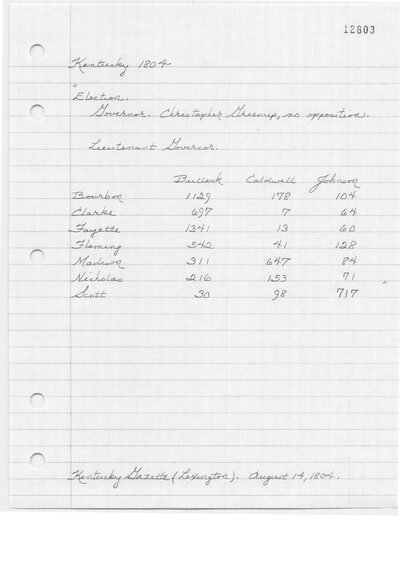 12803
Kentucky 1804
"Election.
Governor. Christopher Greenup, no opposition.
Lieutenant Governor.
Bullock Caldwell Johnson
Bourbon 1129 178 104
Clarke 697 7 64
Fayette 1341 13 60
Fleming 542 41 128
Madison 311 647 84
Nicholas 216 153 71
Scott 30 98 717 "
Kentucky Gazette (Lexington). August 14, 1804.